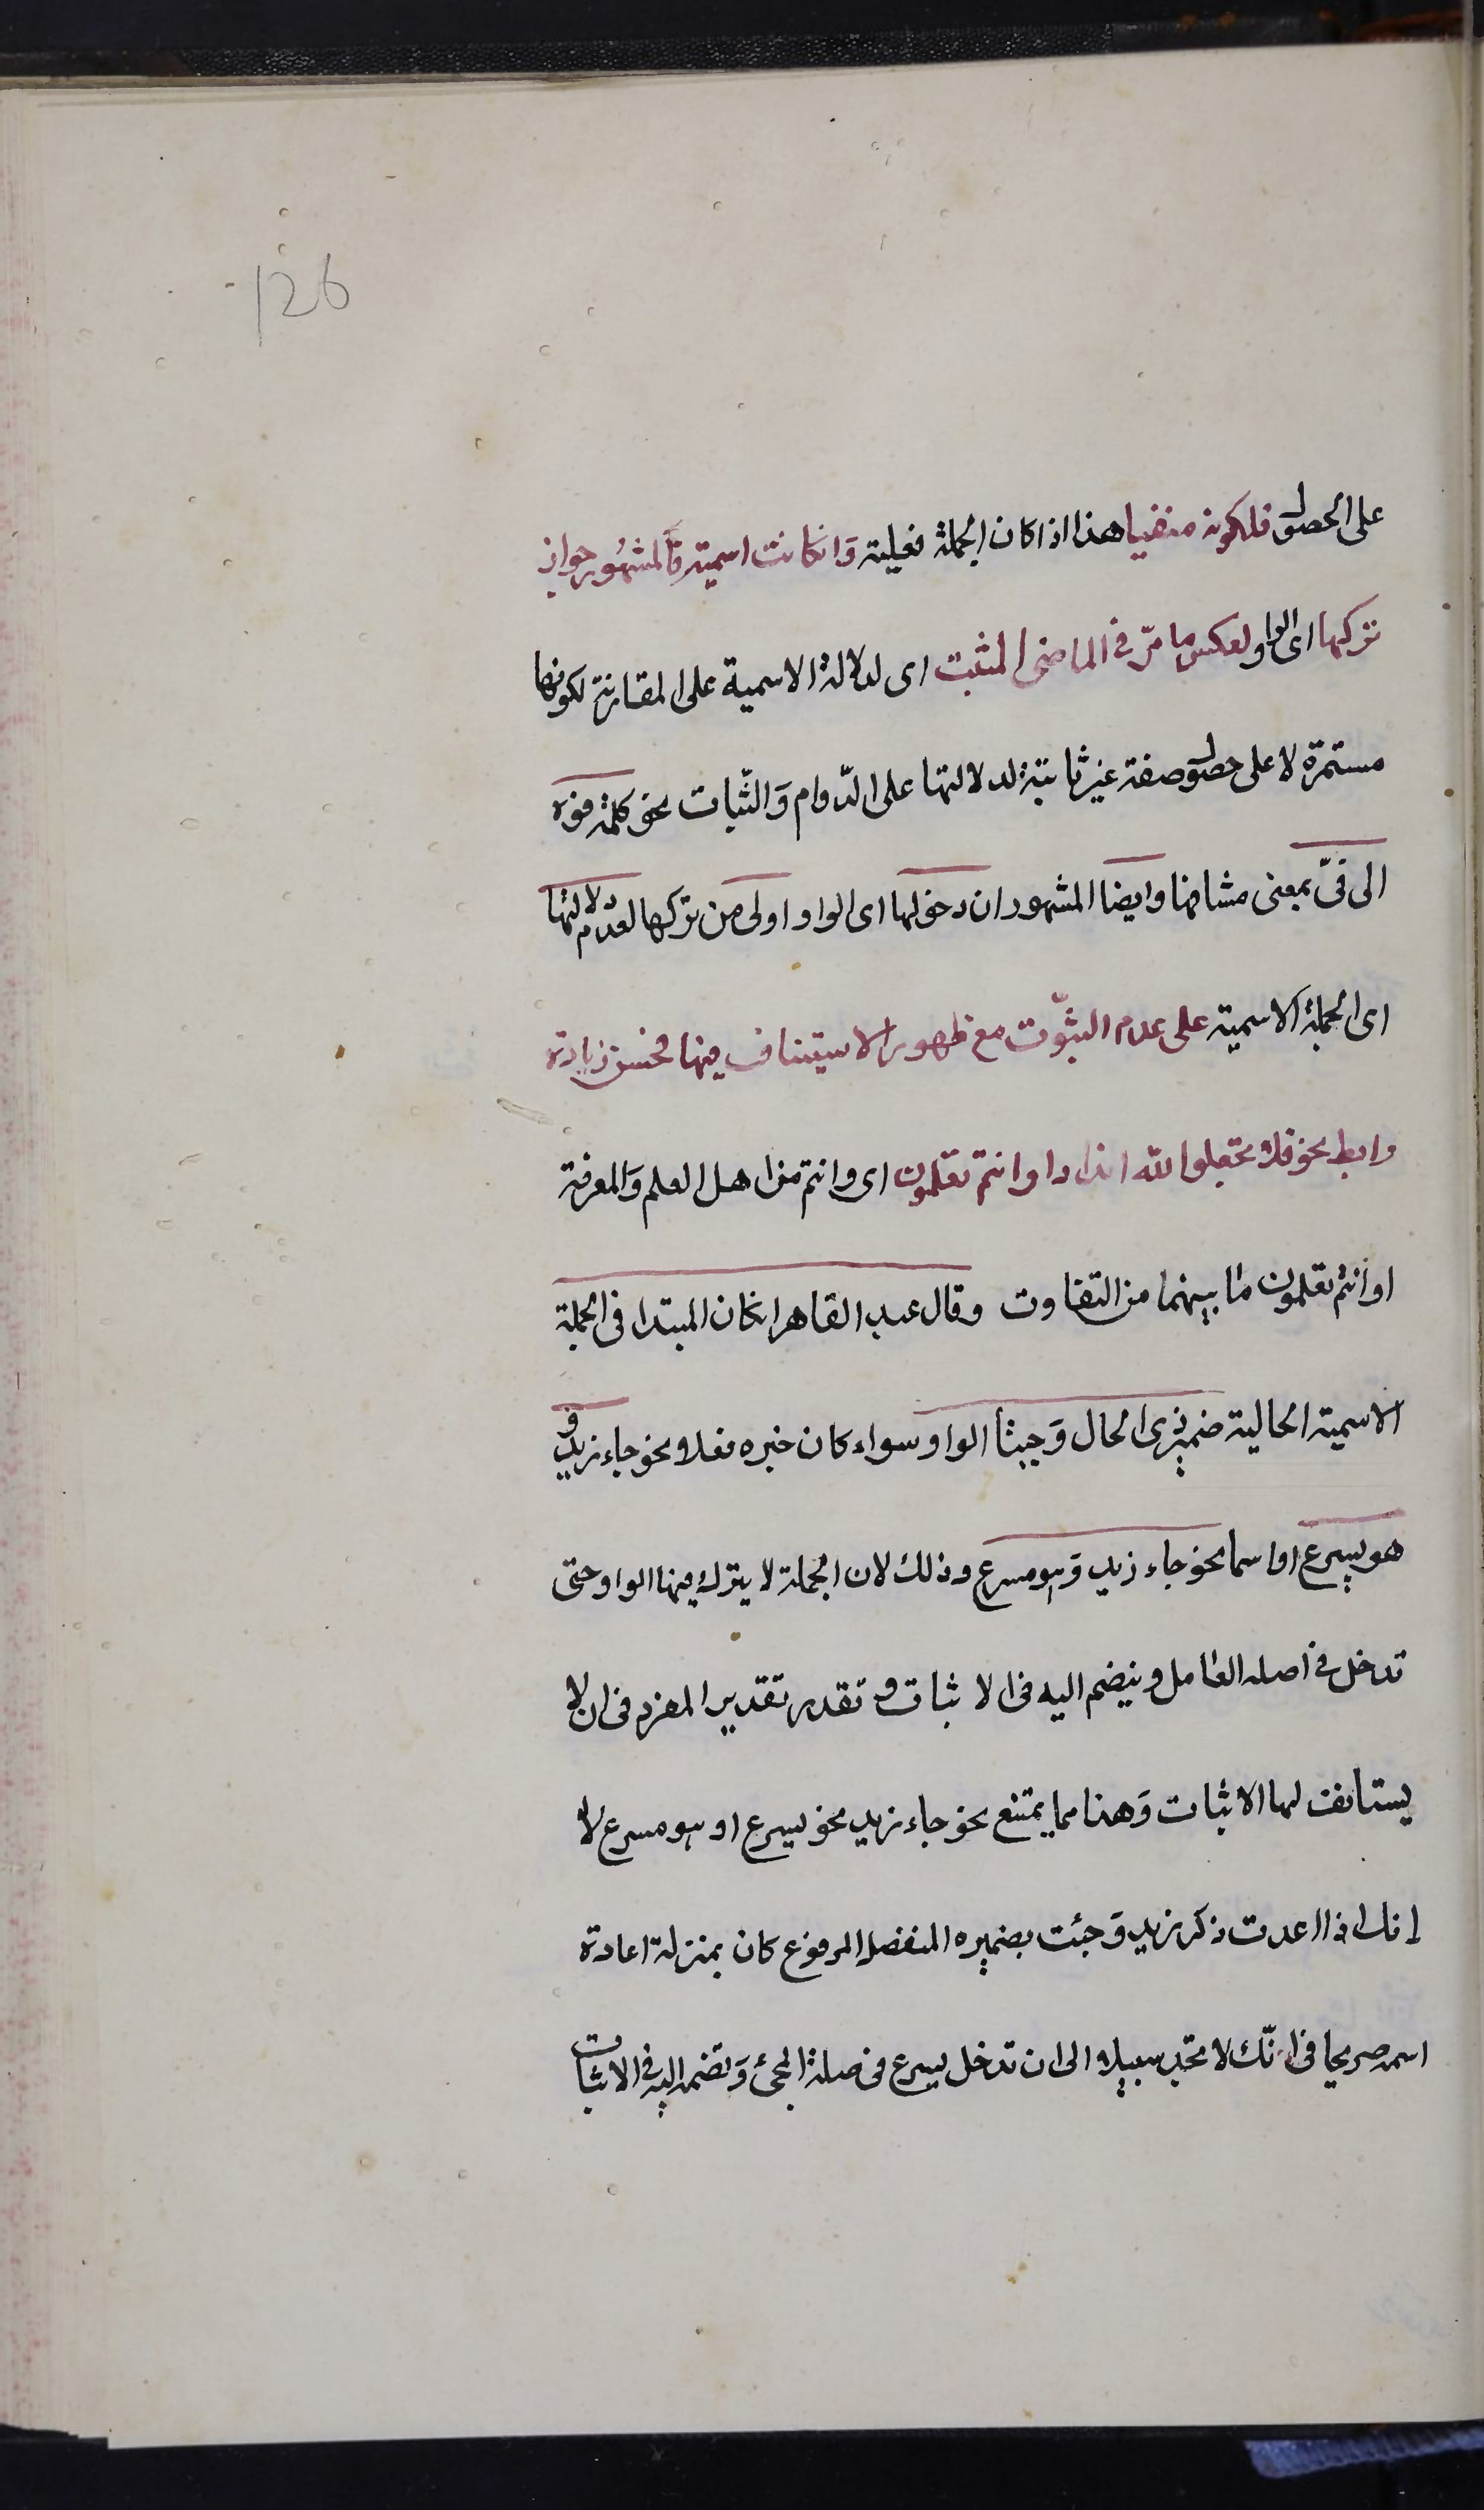 126
على الحصول فلكونه منفيا هذا اذا كان الجملة فعلية وَانكانت اسمية فَالمشهُور جواز
تركها اى الواو لعكس ما مرّ في الماضى المثبت اى لدلالة الاسمية على المقارنة لكونها
مستمرة لا على حصول صفة غير ثابتة لدلالتها على الدّوام وَالثّبات نحو كلمته فوه
الى فىّ بمعنى مشافها وايضا المشهور ان دخولها اى الواو اولى من تركها لعدم دلالتها
اى الجملة الاسمية على عدم الثبوّت مع ظهور الاستيناف فيها فحسن زيادة
رابط نحو فلا تجعلوا لله اندادا وانتم تعلمون اى وانتم من اهل العلم وَالمعرفة
او انتم تعلمون ما بينهما من التفاوت وقال عبد القاهر انكان المبتدا فى الجملة
الاسمية الحالية ضمير ذى الحال وَجبت الواو سواء كان خبره فعلا نحو جاء زيد و
هو يسرع او اسما نحو جاء زيد وَهو مسرع وذلك لان الجملة لا يترك فيها الواو حتى
تدخل في اصله العامل وينضم اليه فى الاثبات و تقدر تقدير المفرد فى ان لا
يستانف لها الاثبات وَهذا مما يمتنع نحو جاء زيد نحو يسرع او هو مسرع لا
انك اذا اعدت ذكر زيد وَجئت بضميره المنفصل المرفوع كان بمنزلة اعادة
اسمه صريحا فى انّك لا تجد سبيلا الى ان تدخل يسرع فى صلة المجئ وَتضمه اليه في الاثبات